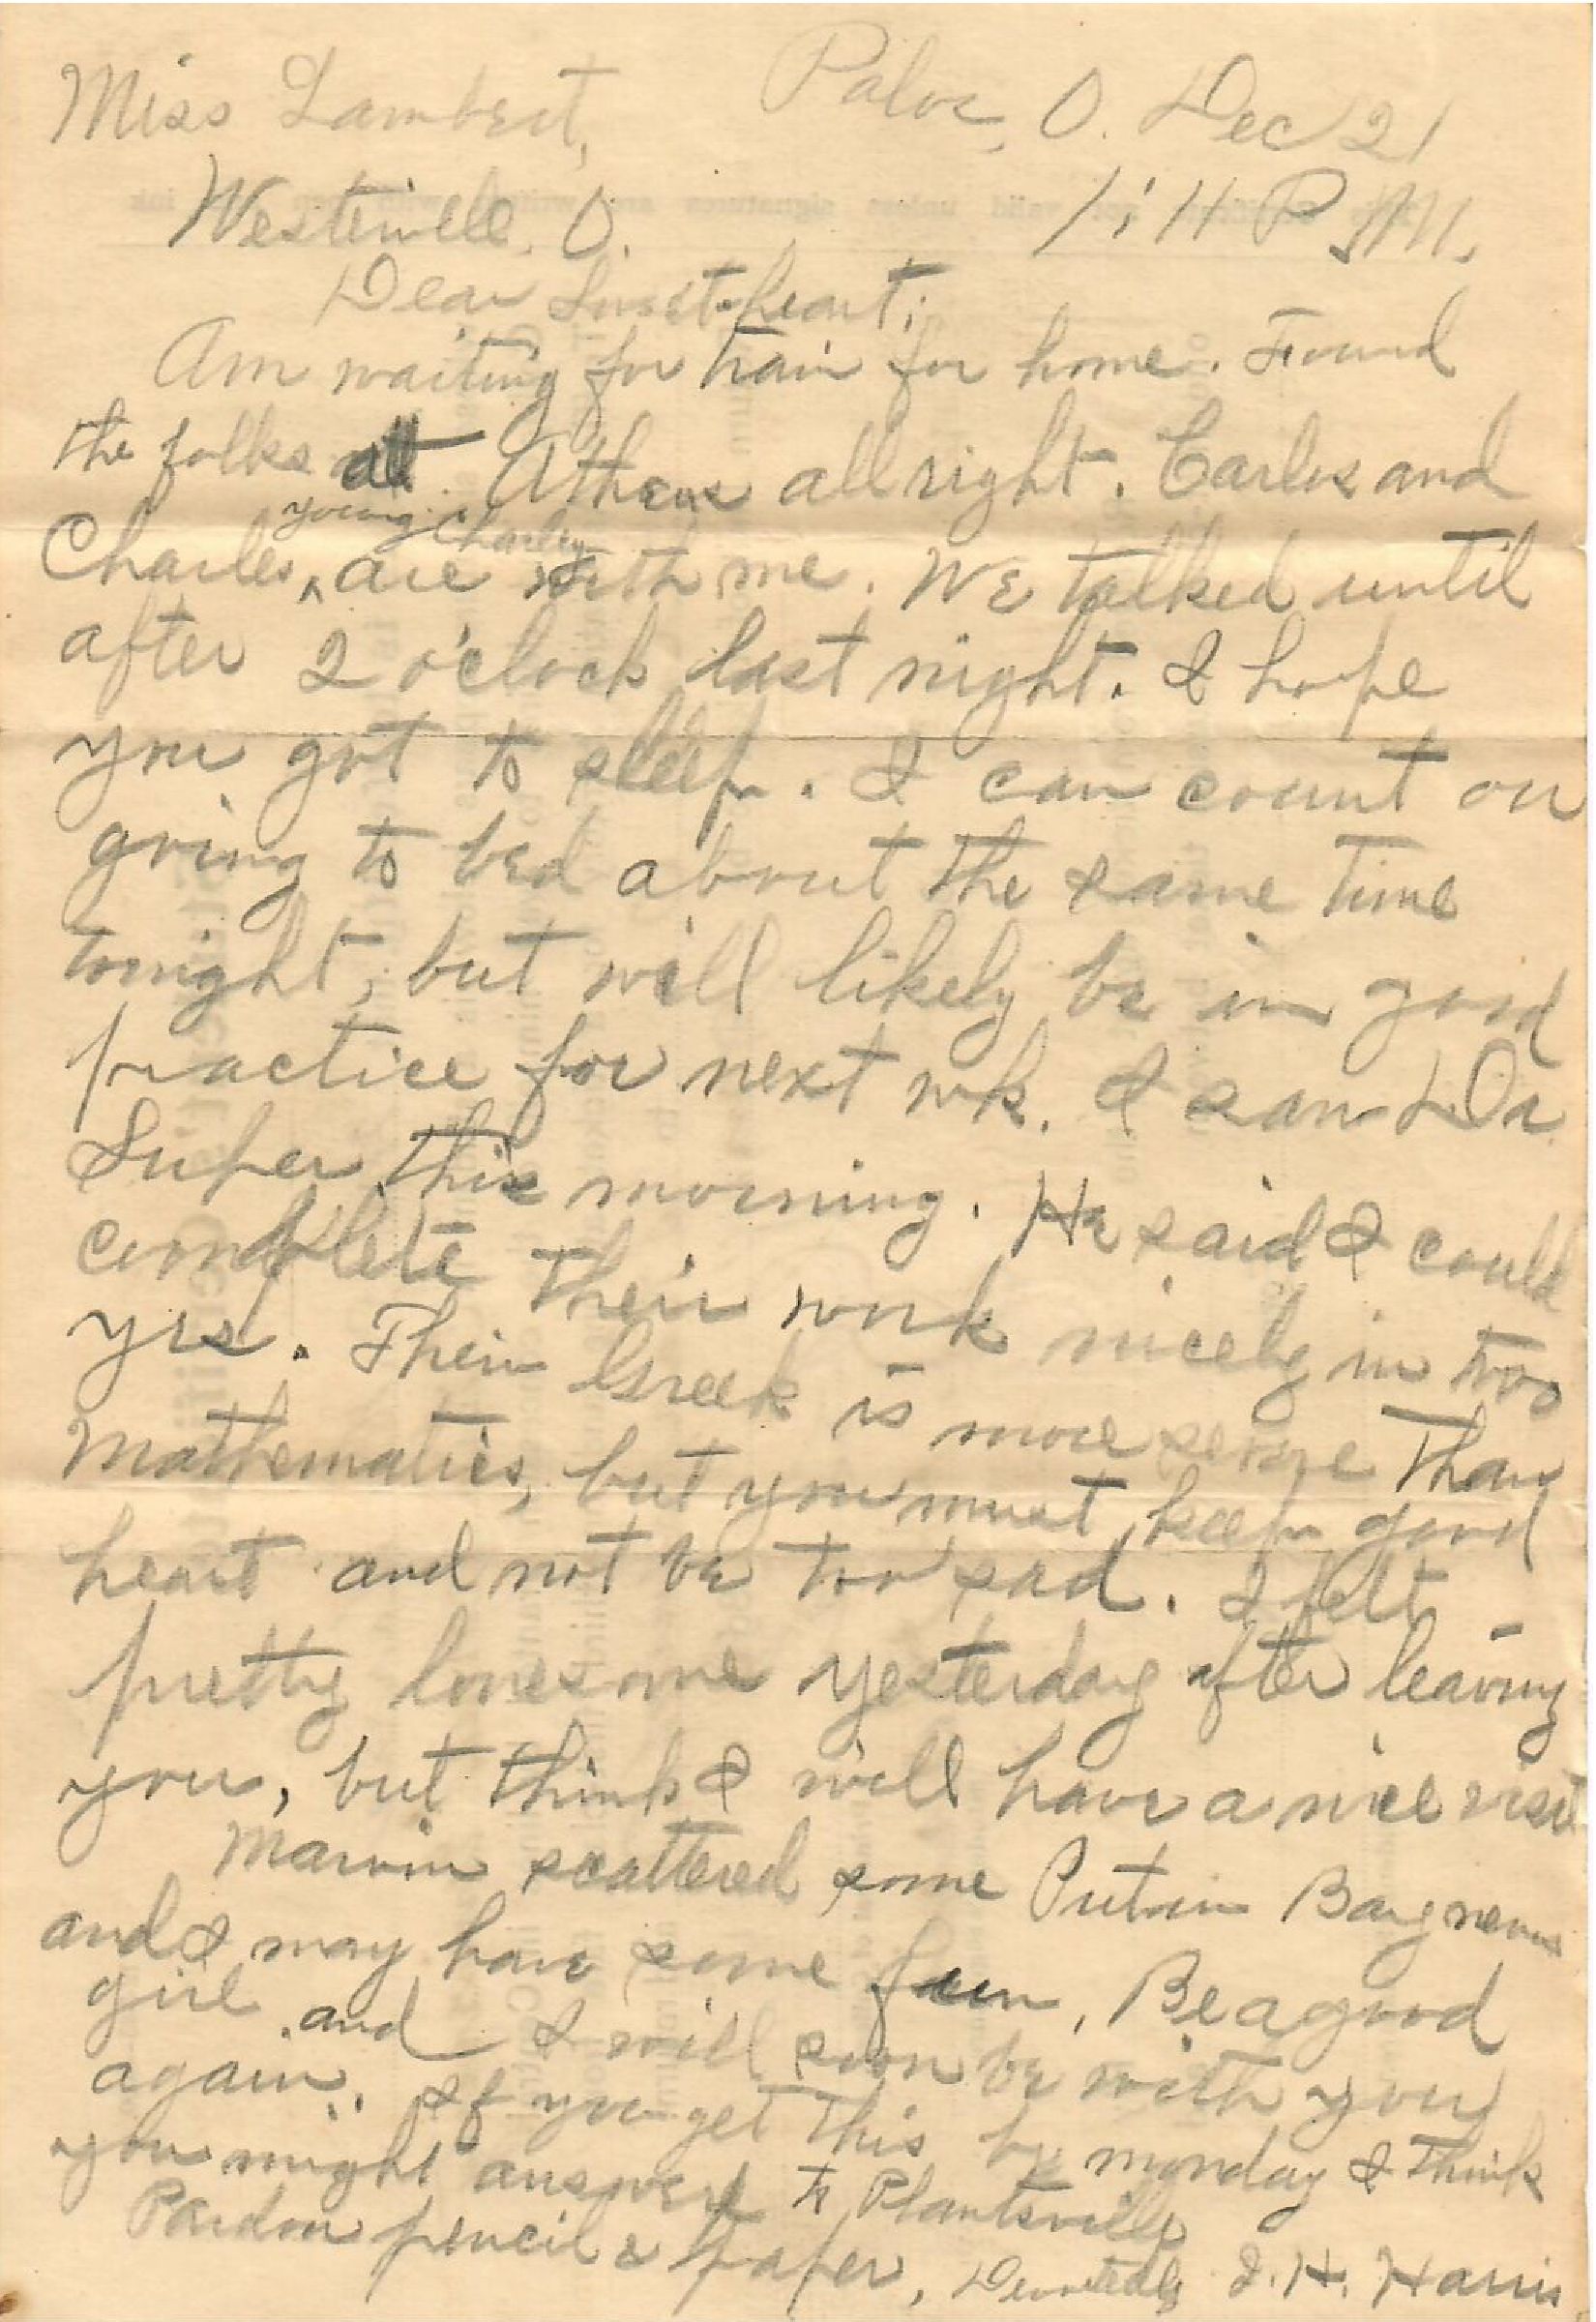 Miss Lambert, Palos, O. Dec 21
Westerville, O. 1:14 P.M.
Dear Sweet-heart;
Am waiting for train for home. Found
the folks at Athens all right. Carlos and
young Charley
Charles, ^ are with me. We talked until
after 2 o'clock last night. I hope
you got to sleep. I can count on
going to bed about the same time
tonight, but will likely be in good
practice for next wk. I saw Dr.
Super this morning. He said I could
complete their work nicely in two
yrs. Their Greek is more than
Mathematics, but you must keep good
heart and not be too sad. I felt
pretty lonesome yesterday after leaving
you, but think I will have a nice visit
Marvin scattered some Put in Bay news
and I may have some fun, Be a good
girl and I will soon be with you
again. If you get this by monday I think
you might answer to Plantsville
Pardon pencil & paper, Devotedly J. H. Harris